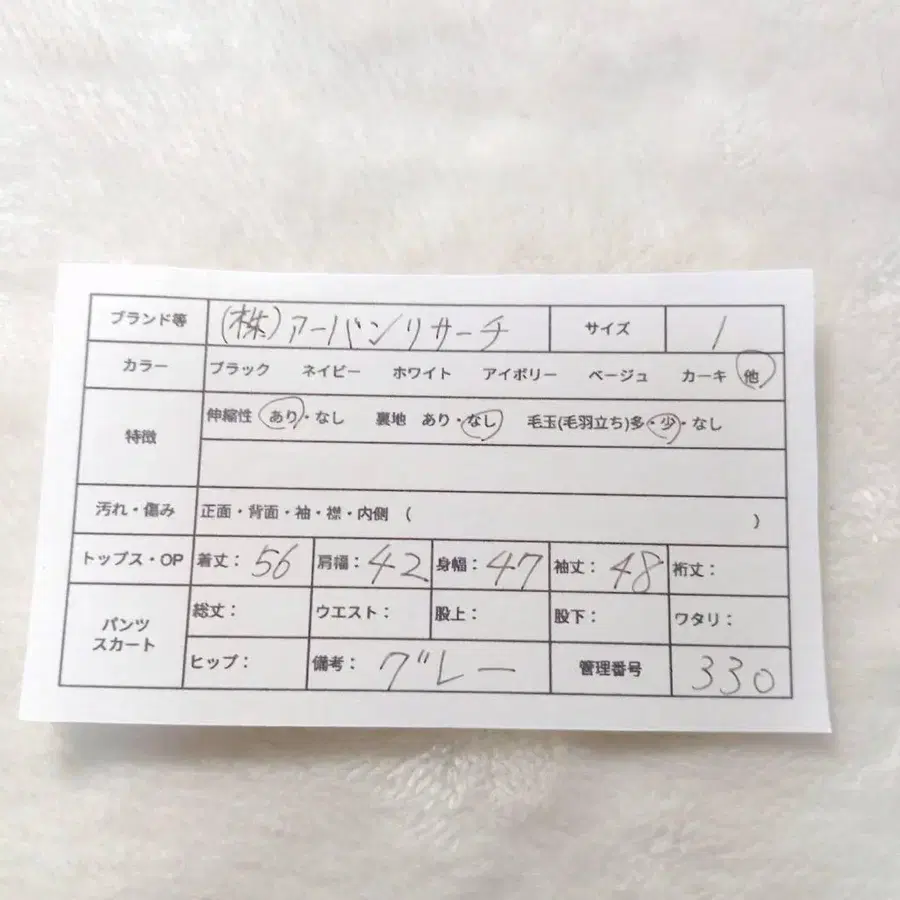 ブランド等 (株)アーバンリサーチ サイズ 1
カラー ブラック ネイビー ホワイト アイボリー ベージュ カーキ 他
特徴 伸縮性 あり・なし 裏地 あり・なし 毛玉(毛羽立ち)多・少・なし
汚れ・傷み 正面・背面・袖・襟・内側 ( )
トップス・OP 着丈: 56 肩幅: 42 身幅: 47 袖丈: 48 裄丈:
パンツ スカート 総丈: ウエスト: 股上: 股下: ワタリ:
ヒップ: 備考: グレー 管理番号 330